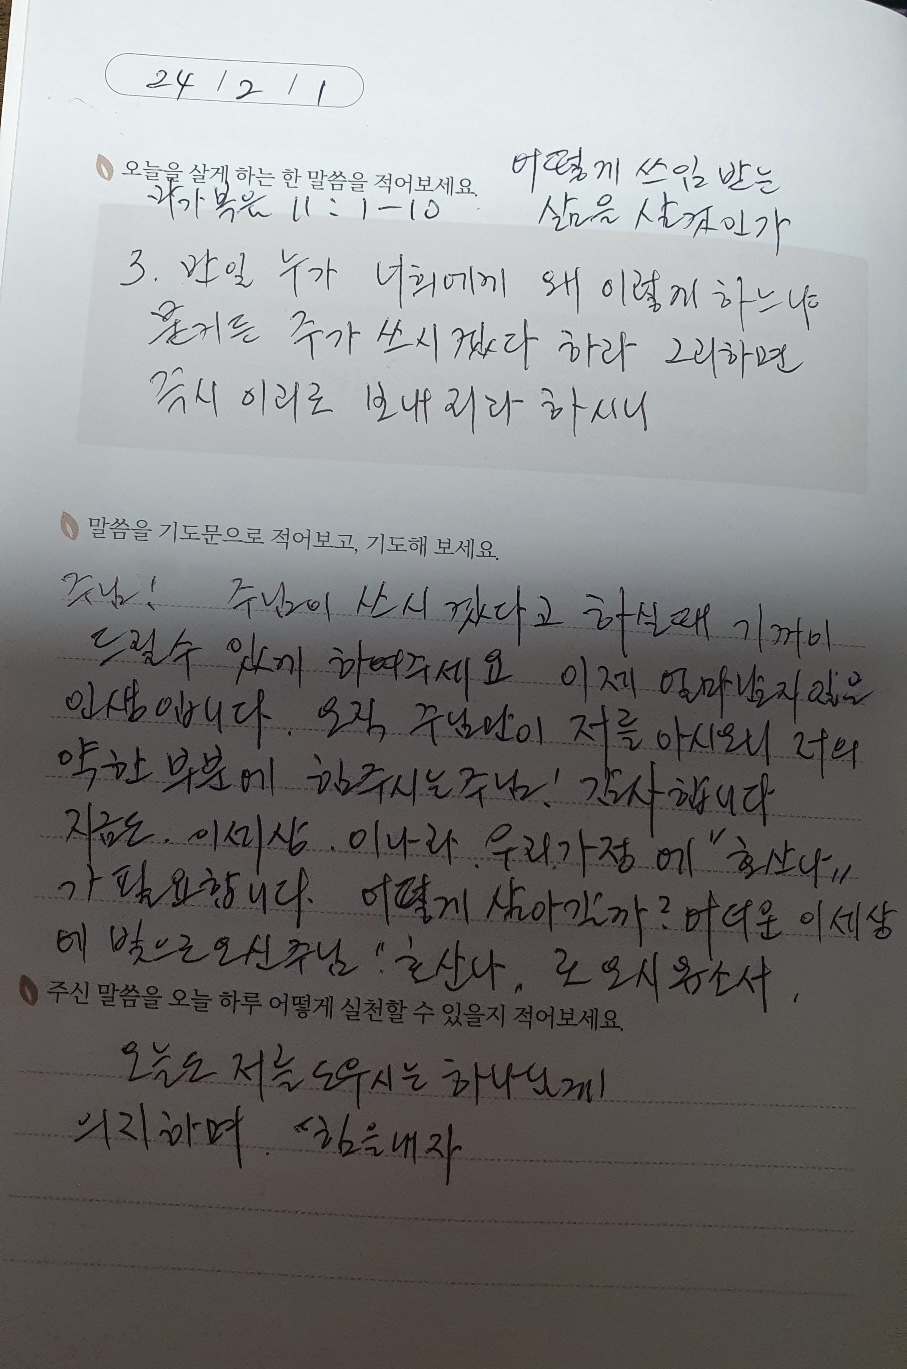 24 / 2 / 1
오늘을 살게 하는 한 말씀을 적어보세요.
어떻게 쓰임 받는
마가복음 11 : 1 - 10
삶을 살것인가
3. 만일 누가 너희에게 왜 이렇게 하느냐
묻거든 주가 쓰시겠다 하라 그리하면
즉시 이리로 보내리라 하시니
말씀을 기도문으로 적어보고, 기도해 보세요.
주님! 주님이 쓰시겠다고 하실때 기꺼이
드릴수 있게 하여주세요 이제 얼마남지않은
인생입니다. 오직 주님만이 저를 아시오니 저의
약한 부분에 힘주시는주님! 감사합니다
지금은. 이세상. 이나라. 우리가정에 "호산나"
가 필요합니다. 어떻게 살아갈까? 어더운 이세상
에 빛으로오신주님 "호산나" 로 오시옵소서.
주신 말씀을 오늘 하루 어떻게 실천할 수 있을지 적어보세요.
오늘도 저를 도우시는 하나님게
의지하며. "힘을내자